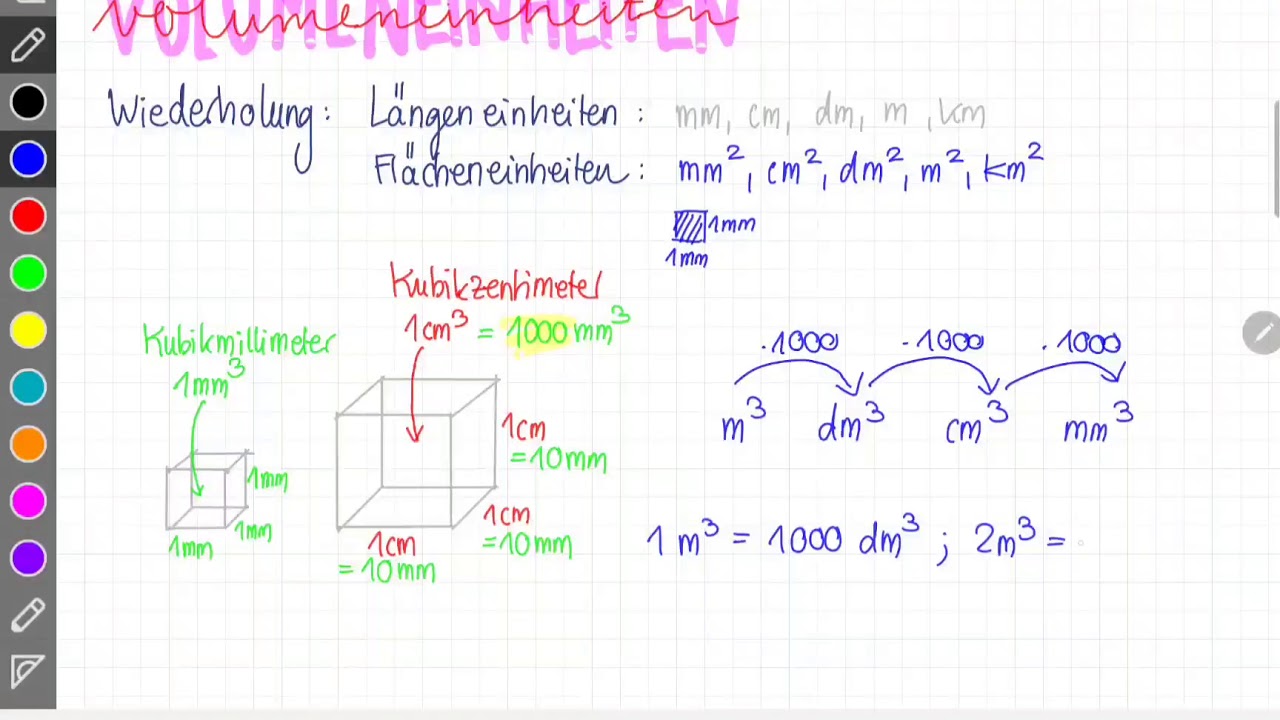 Volumeneinheiten
VOLUMENEINHEITEN
Wiederholung: Längeneinheiten: mm, cm, dm, m, km
Flächeneinheiten: mm², cm², dm², m², km²
1mm
1mm
Kubikzentimeter
1cm³ = 1000 mm³
Kubikmillimeter
1mm³
1mm
1mm
1mm
1cm
=10mm
1cm
=10mm
1cm
=10mm
·1000 ·1000 ·1000
m³ dm³ cm³ mm³
1 m³ = 1000 dm³ ; 2m³ =